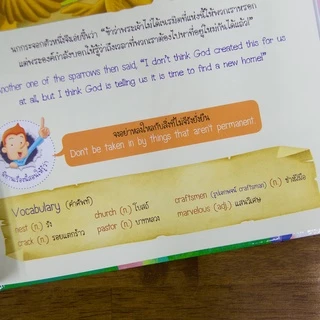 นกกระจอกตัวหนึ่งจึงเอ่ยขึ้นว่า "ข้าว่าพระเจ้าไม่ได้เนรมิตที่แห่งนี้ให้พวกเราหรอก
แต่พระองค์กำลังบอกให้รู้ว่าถึงเวลาที่พวกเราต้องไปหาที่อยู่ใหม่กันได้แล้ว!"
Another one of the sparrows then said, "I don't think God created this for us
at all, but I think God is telling us it is time to find a new home!"
จงอย่าหลงใหลกับสิ่งที่ไม่จีรังยั่งยืน
Don't be taken in by things that aren't permanent.
Vocabulary (คำศัพท์)
nest (n.) รัง church (n.) โบสถ์ craftsmen (รูปเอกพจน์ craftsman) (n.) ช่างฝีมือ
crack (n.) รอยแตกร้าว pastor (n.) บาทหลวง marvelous (adj.) แสนวิเศษ